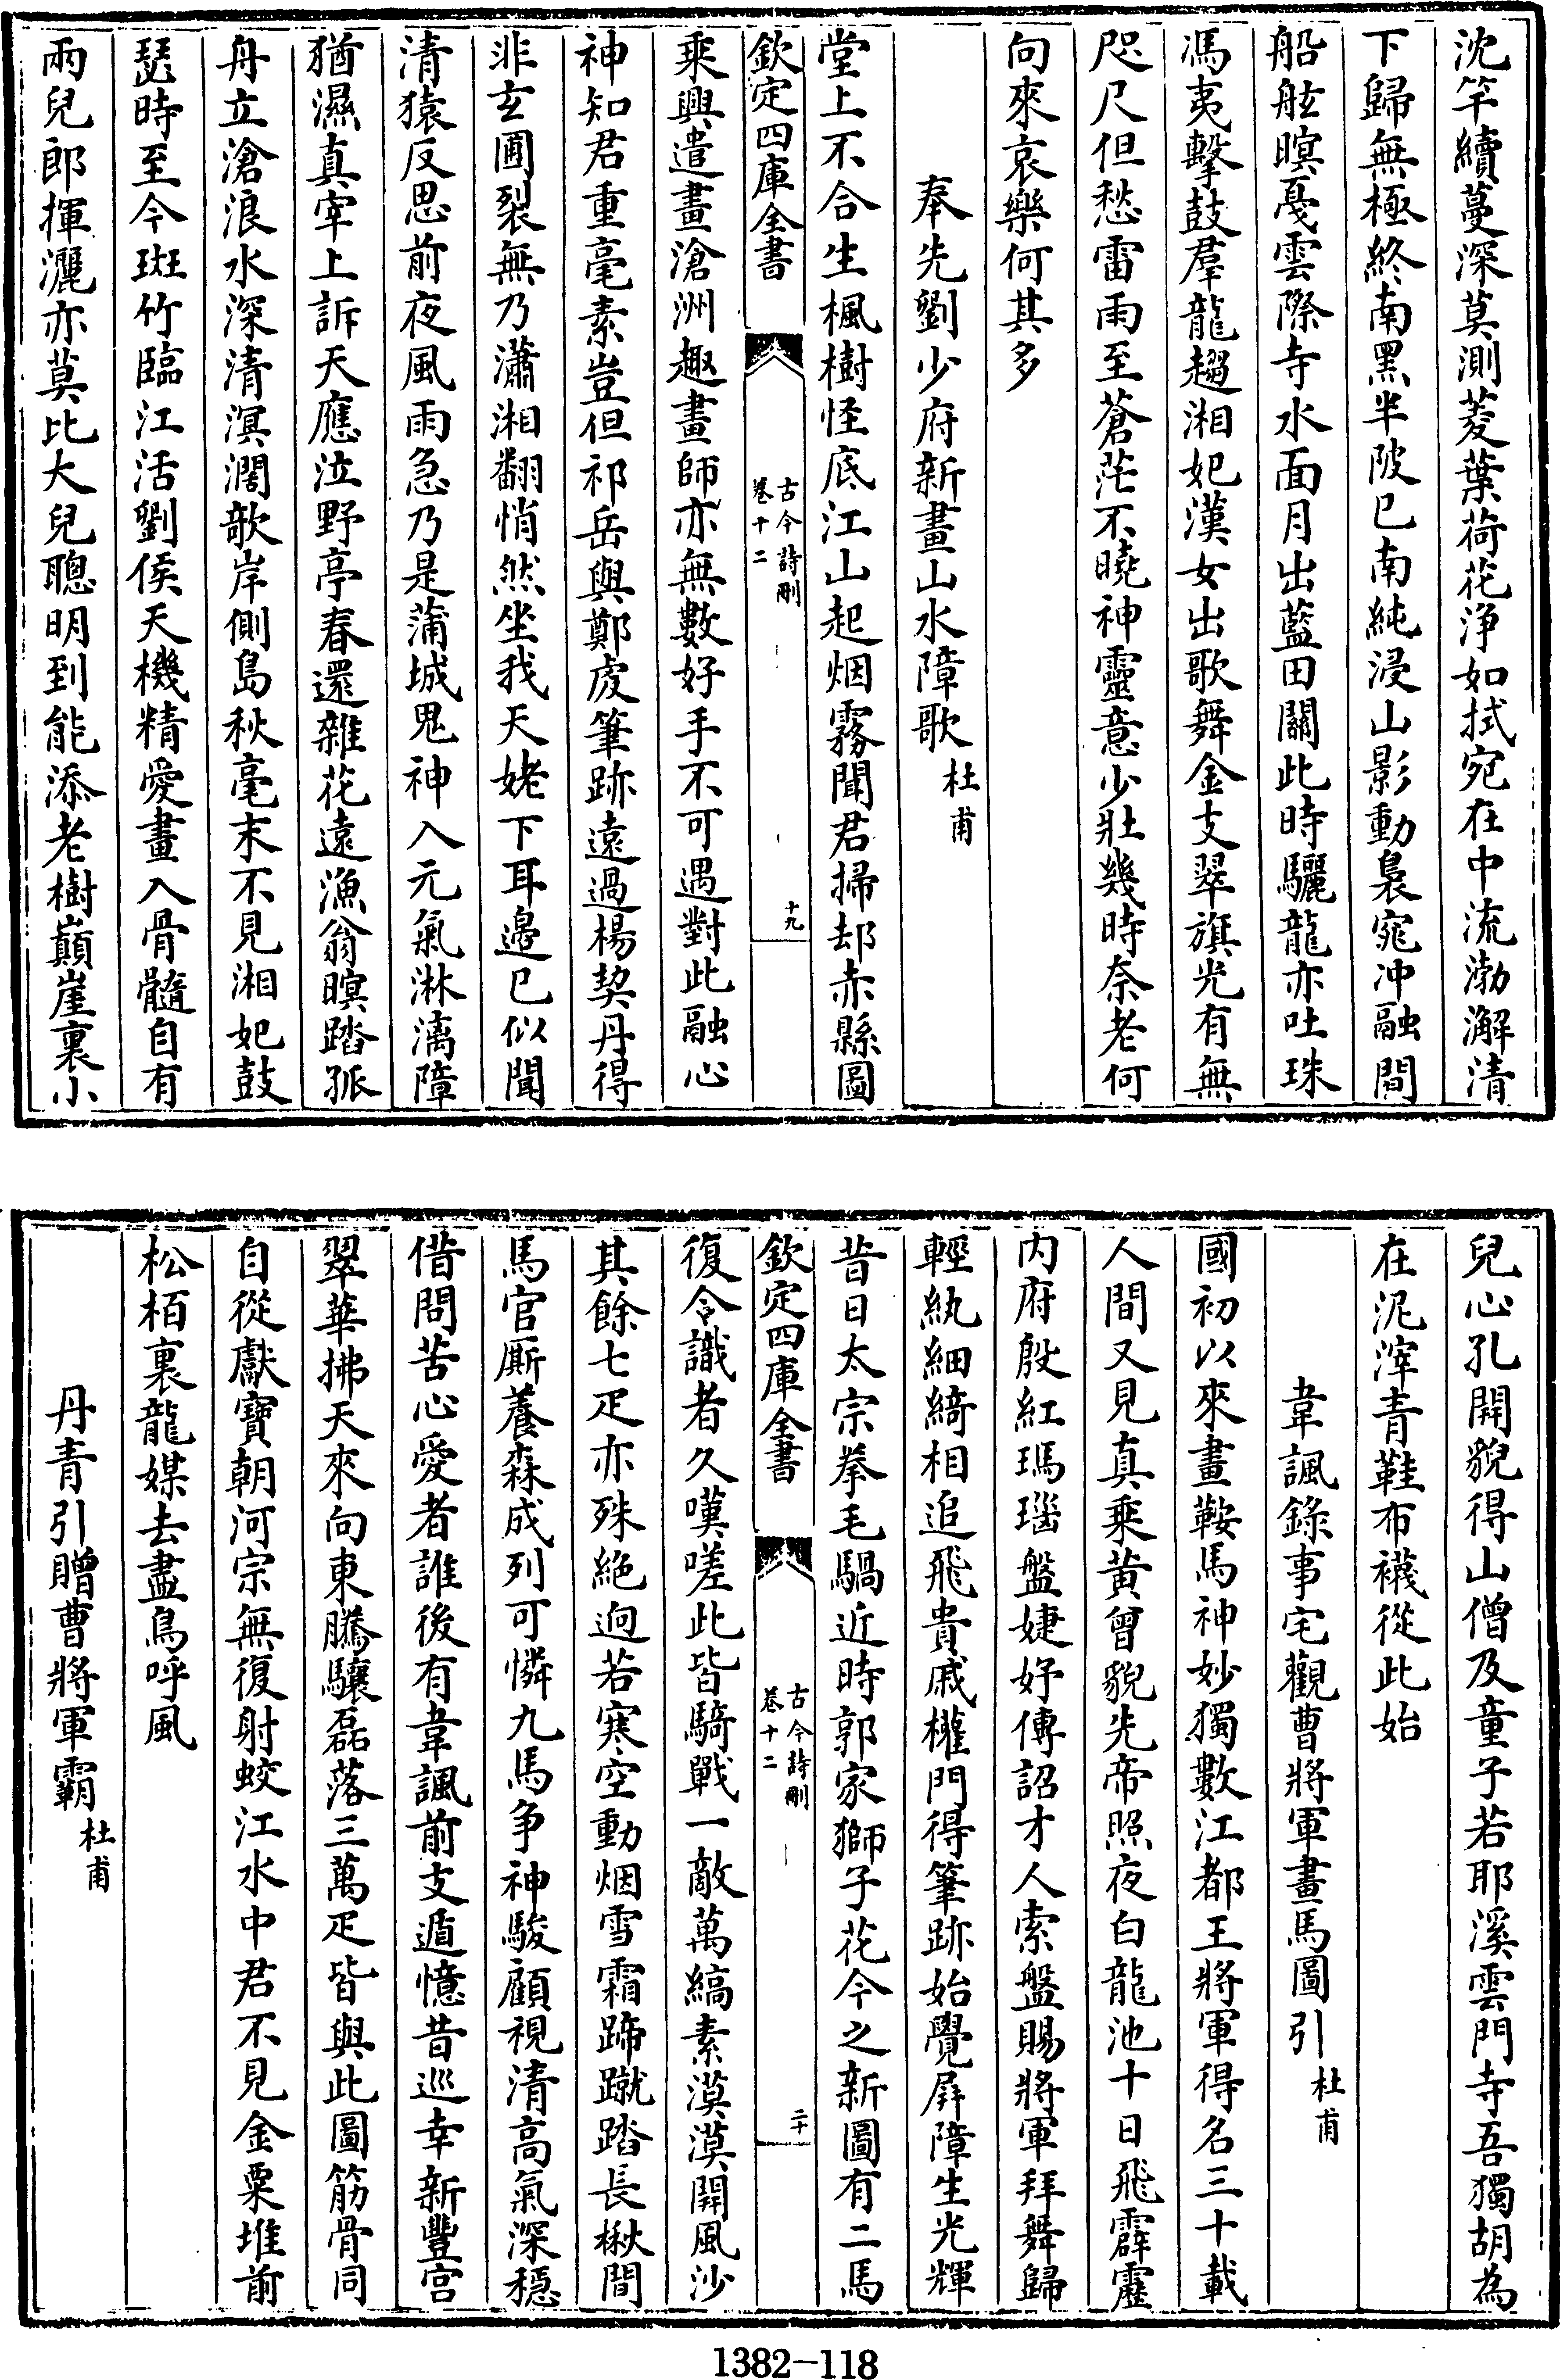 沈竿續蔓深莫測菱葉荷花淨如拭宛在中流渤澥清
下歸無極終南黑半陂已南純浸山影動裊窕冲融間
船舷暝戛雲際寺水面月出藍田關此時驪龍亦吐珠
馮夷擊鼓羣龍趨湘妃漢女出歌舞金支翠旗光有無
咫尺但愁雷雨至蒼茫不曉神靈意少壯幾時奈老何
向來哀樂何其多
奉先劉少府新畫山水障歌 杜甫
堂上不合生楓樹怪底江山起烟霧聞君掃却赤縣圖
欽定四庫全書 古今詩刪 卷十二 十九
乘興遣畫滄洲趣畫師亦無數好手不可遇對此融心
神知君重毫素豈但祁岳與鄭虔筆跡遠過楊契丹得
非玄圃裂無乃瀟湘翻悄然坐我天姥下耳邊已似聞
清猿反思前夜風雨急乃是蒲城鬼神入元氣淋漓障
猶濕真宰上訴天應泣野亭春還雜花遠漁翁暝踏孤
舟立滄浪水深清溟濶欹岸側島秋毫末不見湘妃鼓
瑟時至今斑竹臨江活劉侯天機精愛畫入骨髓自有
兩兒郎揮灑亦莫比大兒聰明到能添老樹巔崖裏小
兒心孔開貌得山僧及童子若耶溪雲門寺吾獨胡為
在泥滓青鞋布襪從此始
韋諷錄事宅觀曹將軍畫馬圖引 杜甫
國初以來畫鞍馬神妙獨數江都王將軍得名三十載
人間又見真乘黃曾貌先帝照夜白龍池十日飛霹靂
内府殷紅瑪瑙盤婕妤傳詔才人索盤賜將軍拜舞歸
輕紈細綺相追飛貴戚權門得筆跡始覺屏障生光輝
昔日太宗拳毛騧近時郭家獅子花今之新圖有二馬
欽定四庫全書 古今詩刪 卷十二 二十
復令識者久嘆嗟此皆騎戰一敵萬縞素漠漠開風沙
其餘七疋亦殊絕迥若寒空動烟雪霜蹄蹴踏長楸間
馬官厮養森成列可憐九馬争神駿顧視清高氣深穩
借問苦心愛者誰後有韋諷前支遁憶昔巡幸新豐宫
翠華拂天來向東騰驤磊落三萬疋皆與此圖筋骨同
自從獻寶朝河宗無復射蛟江水中君不見金粟堆前
松栢裏龍媒去盡鳥呼風
丹青引贈曹將軍霸 杜甫
1382-118